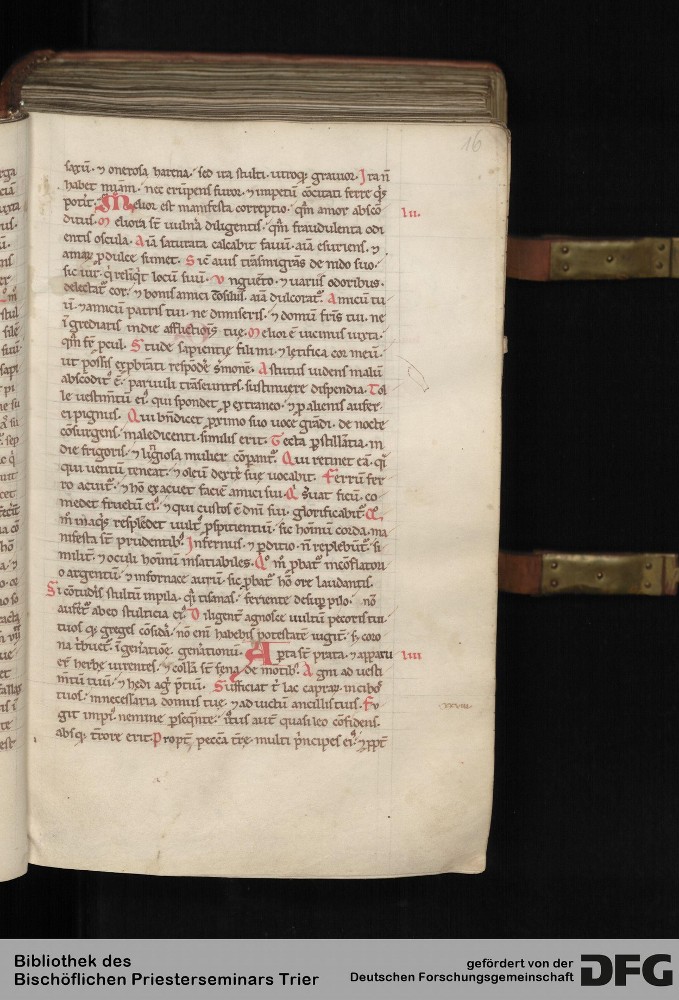 16
saxū. ⁊ onerosa harena. sed ira stulti utroq; grauior. Ira ñ
habet miam. nec erūpens furor. ⁊ impetū cōcitati ferre q̇s
potit. Melior est manifesta correptio. qm̄ amor absco
lii.
ditus. Meliora st̄ uulnā diligentis. qm̄ fraudulenta odi
entis oscula. Aīa saturata calcabit fauū. aīa esuriens. ⁊
amar̄ p dulce sumet. Sic auis trāsmigrās de nido suo.
sic uir. q̇ relinq̇t locū suū. Unguēto. ⁊ uariis odoribus.
delectat cor. ⁊ bonis amici cōsiliis. aīa dulcorat. Amicū tu
ū. ⁊ amicū patris tui. ne dimiseris. ⁊ domū fr̄is tui. ne
īgrediaris in die afflictionis tue. Melior ē uicinus iuxta.
qm̄ fr̄ pcul. Stude sapientie fili mi. ⁊ letifica cor meū.
ut possis exprobrāti respōdē sermonē. Astutus uidens malū
abscoditꝰ ē. paruuli trāseuntes. sustinuere dispendia. Tol
le uestimtū eiꝰ. qui spondet p extraneo. ⁊ p alienis aufer.
ei pignus. Qui bn̄dicet proximo suo uoce grādi. de nocte
cōsurgens. maledicenti similis erit. Tecta pstillātia. in
die frigoris. ⁊ litigiosa mulier cōparant. Qui retinet eā. q̇
qui uentū teneat. ⁊ oleū dextre sue uocabit. Ferrū fer
ro acuit. ⁊ hō exacuet faciē amici sui. Qi seruat ficū. co
medet fructū eiꝰ. ⁊ qui custos ē dn̄i sui. glorificabit. Qo
m̄ in aq̇s resplēdet uultꝰ pspicientiū. sic hominū corda. ma
nifesta st̄ prudentibꝰ. Infernus. ⁊ pditio. ñ replebunt. si
milit. ⁊ oculi hominū insatiabiles. Qo m̄ pbat in conflatori
o argentū. ⁊ in fornace aurū. sic pbat hō ore laudantis.
Si cōtuderis stultū in pila. q̇ tisanas. feriente desup pilo. non
auferet ab eo stulticia eiꝰ. Diligent agnosce uultū pecoris tui.
tuos q; greges cōsidā. nō eni habebis potestatē iugit. s; coro
na tbuet. ī genatioē. genationū. Apta st̄ prata. ⁊ apparu
liii
er̄ herbe uirentes. ⁊ collcā st̄ fena de motibꝰ. Agni ad uesti
mtū tuū. ⁊ hedi agi ptiū. Sufficiat t̄ lac caprar̄ in cibos
tuos. in necessaria domus tue. ⁊ ad uictū ancillis tuis. Fu
xxviii
git impiꝰ nemine psequente. iustus aut quasi leo cōfidens.
absq; t̄rore erit. Propt̄ peccā t̄re. multi p̄ncipes eiꝰ. ⁊ ppt̄
Bibliothek des
Bischöflichen Priesterseminars Trier
gefördert von der
Deutschen Forschungsgemeinschaft
DFG